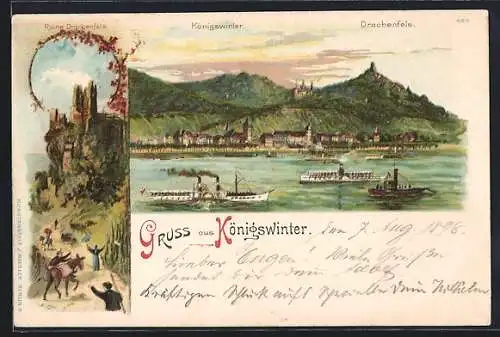 Ruine Drachenfels.
Königswinter.
Drachenfels.
Gruss aus Königswinter.
den 7. Aug. 1896.
Lieber Eugen! Viele Grüße
sendet Dir dein
Kräftigen Schluck auf Spezielle dein Wilhelm